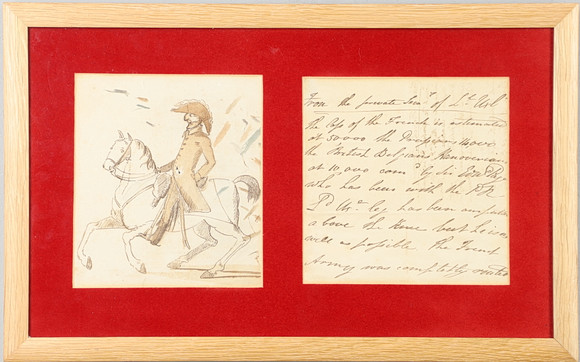 From the private Secy of Ld Uxb
the loss of the French is estimated
at 50000 the Prussians
the British Belgians Hanoverians
at 10,000 comd by Sir
who has been with the
Ld Ux leg has been amputated
above the Knee but he is as
well as possible The French
Army was completely routed